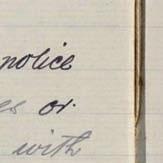 notice
or
with